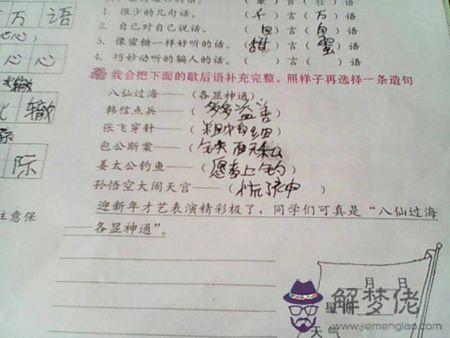 言
1. 很少的几句话。 (千)言(万)语
2. 自己对自己说话。 (自)言(自)
3. 像蜜糖一样好听的话。 (甜)言(蜜)
4. 巧妙动听的骗人的话。 ( )言( )
我会把下面的歇后语补充完整。照样子再选择一条造句
八仙过海——(各显神通)
韩信点兵——(多多益善)
张飞穿针——(粗中有细)
包公断案——(铁面无私)
姜太公钓鱼——(愿者上钩)
孙悟空大闹天宫——(慌了玉帝)
迎新年才艺表演精彩极了,同学们可真是“八仙过海
——各显神通”。
万 语
心 心
辙
际
注意保
月 日
星
天气
解梦佬
www.jiemenglao.com